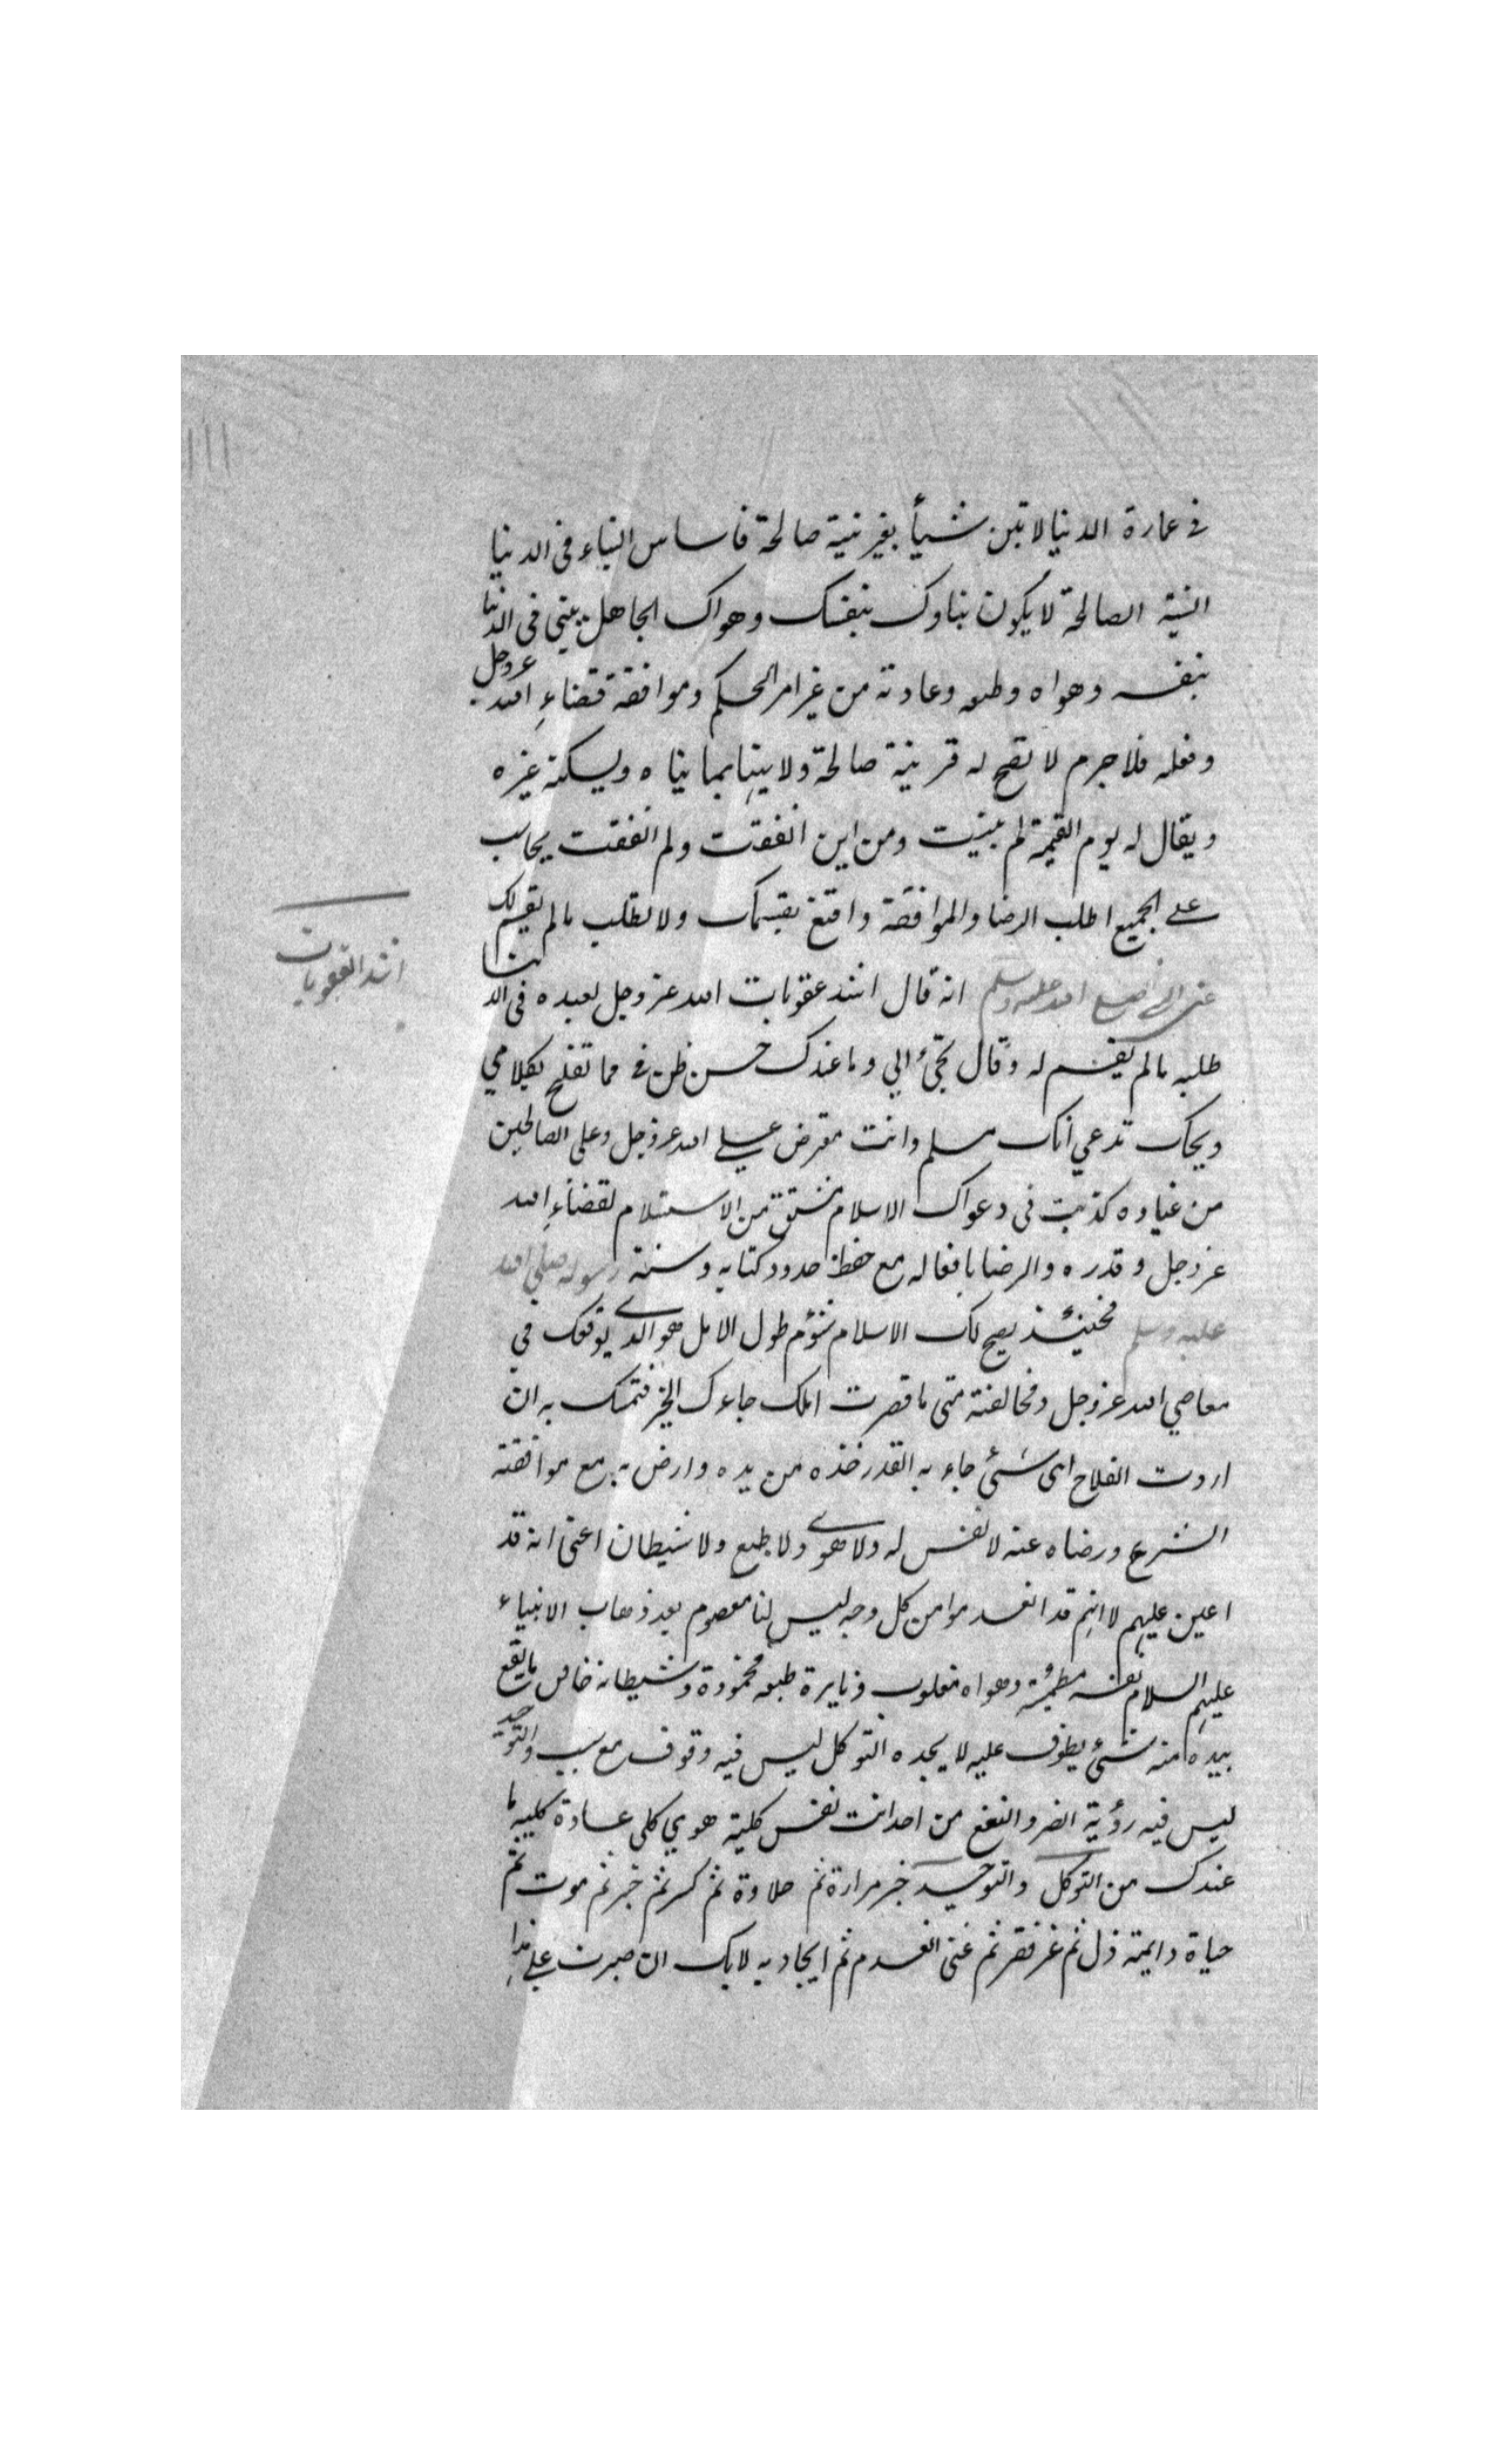 في عمارة الدنيا لا تبن شيأ بغير نية صالحة فاساس البناء في الدنيا
النية الصالحة لا يكون بناوك بنفسك وهواك الجاهل يبني في الدنيا
بنفسه وهواه وطبعه وعادته من غير امر الحكم وموافقة قضاء الله عز وجل
وفعله فلا جرم لا تصح له قر نية صالحة ولا يتهنا بما بناه ويسكنه غيره
ويقال له يوم القيمة لم بنيت ومن اين انفقت ولم انفقت يحاسب
على الجميع اطلب الرضا والموافقة واقنع بقسمك ولا تطلب ما لم يقسم لك
عن النبي صلى الله عليه وسلم انه قال اشد عقوبات الله عز وجل لعبده في الدنيا
اشد العقوبات
طلبه ما لم يقسم له وقال تجئ الي وما عندك حسن ظن في مما تفلح بكلامي
ويحك تدعي انك مسلم وانت معترض على الله عز وجل وعلى الصالحين
من عباده كذبت في دعواك الاسلام مشتق من الاستسلام لقضاء الله
عز وجل وقدره والرضا بافعاله مع حفظ حدود كتابه وسنة رسوله صلى الله
عليه وسلم فحينئذ يصح لك الاسلام شؤم طول الامل هو الذي يوقعك في
معاصي الله عز وجل ومخالفته متى ما قصرت املك جاءك الخير فتمسك به ان
اردت الفلاح اى شئ جاء به القدر خذه من يده وارض به مع موافقة
الشرع ورضاه عنه لا نفس له ولا هوى ولا طبع ولا شيطان اعنى انه قد
اعين عليهم لا انهم قد انعدموا من كل وجه ليس لنا معصوم بعد ذهاب الانبياء
عليهم السلام نفسه مطمئنة وهواه مغلوب ونايرة طبعه مخمودة وشيطانه خاس ما يقع
بيده منه شئ يطوف عليه لا يجده التوكل ليس فيه وقوف مع سبب والتوحيد
ليس فيه رؤية الضر والنفع من احد انت نفس كلية هوي كلى عادة كلية ما
عندك من التوكل والتوحيد خبر مرارة ثم حلاوة ثم كسر ثم جبر ثم موت ثم
حياة دايمة ذل ثم عز فقر ثم غنى انعدم ثم ايجاد به لا بك ان صبرت على هذا